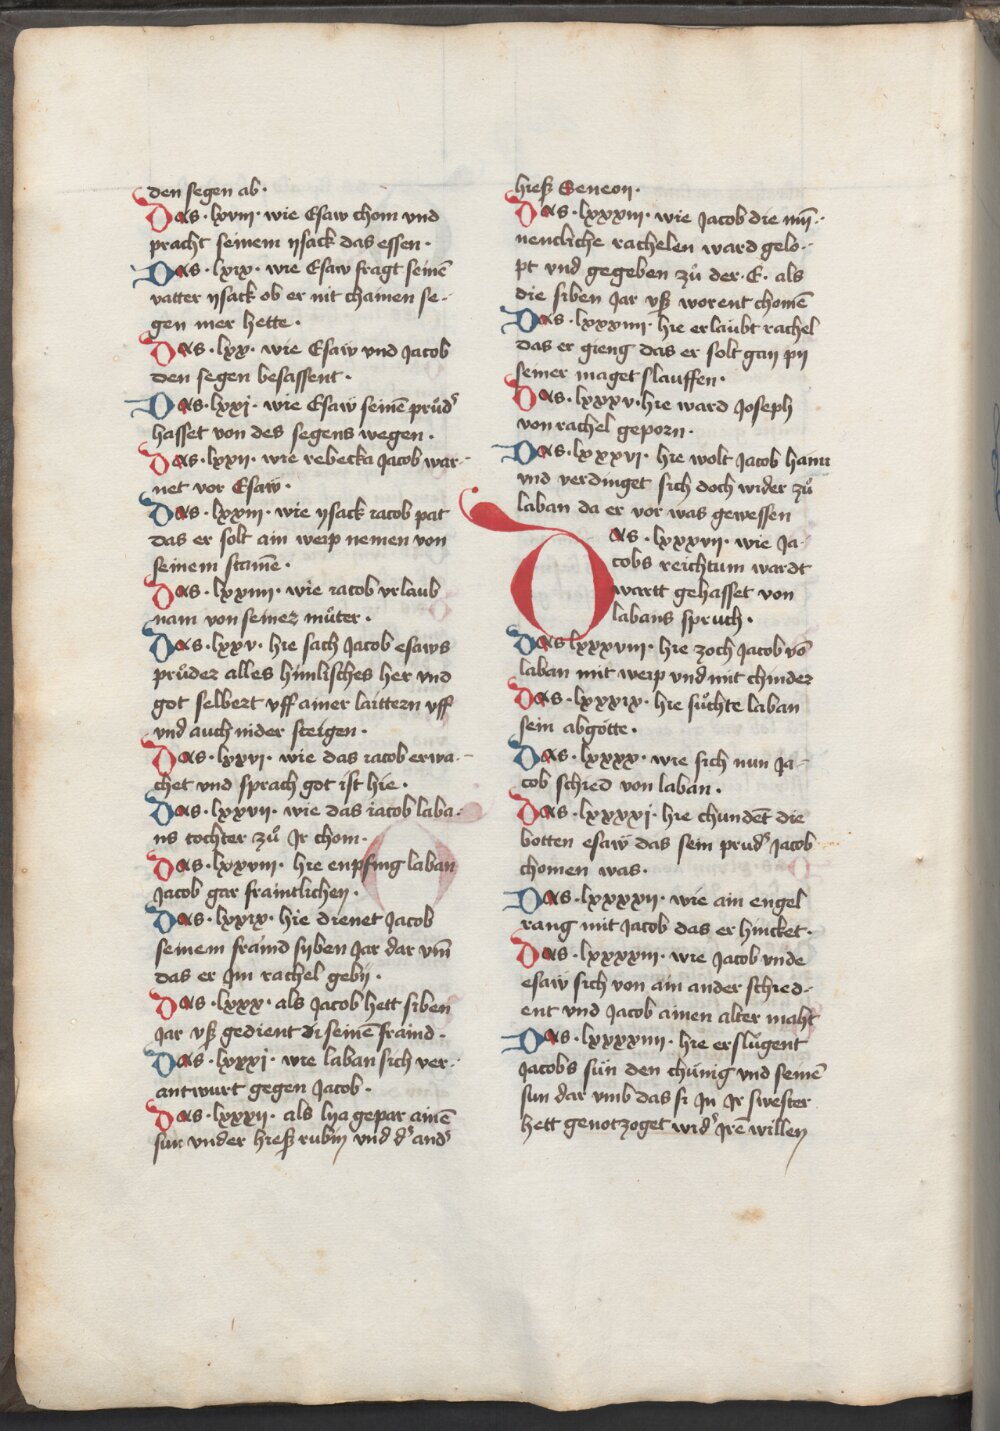 den segen ab·
Das·lxviii· wie Esaw chom vnd
pracht seinem ysack das essen·
Das·lxix· wie Esaw fragt seinē
vatter ysack ob er nit chainen se-
gen mer hette·
Das·lxx· wie Esaw vnd Jacob
den segen besassent·
Das·lxxj· wie Esaw seinē průdˢ
hasset von des segens wegen·
Das·lxxii· wie rebecka Jacob war-
net vor Esaw·
Das·lxxiii· wie ysack iacob pat
das er solt ain weip nemen von
seinem stamē·
Das·lxxiiii· wie iacob vrlaub
nam von seiner můter·
Das·lxxv· hie sach Jacob esaws
průder alles himlisches her vnd
got selbert vff ainer laittern vff
vnd auch nider steigen·
Das·lxxvi· wie das iacob erwa-
chet vnd sprach got ist hie·
Das·lxxvii· wie das iacob laba-
ns tochter zů Jr chom·
Das·lxxviii· hie enpfing laban
Jacob gar fraintlichen·
Das·lxxix· hie dienet Jacob
seinem fraind syben Jar dar vm̄
das er Jm rachel geby·
Das·lxxx· als Jacob hett siben
Jar vß gedient seinē fraind·
Das·lxxxi· wie laban sich ver-
antwurt gegen Jacob·
Das·lxxxii· als lya gepar ainē
sun vnder hieß rubin vnd dˢ andˢ
hieß Seneon·
Das·lxxxiii· wie Jacob die mi-
nencliche rachelen ward gelo-
pt vnd gegeben zů der·E· als
die siben Jar vß worent chomē
Das·lxxxiiii· hie erlaubt rachel
das er gieng das er solt gan py
seiner maget slauffen·
Das·lxxxv· hie ward Joseph
von rachel geporn·
Das·lxxxvi· hie wolt Jacob haim
vnd verdinget sich doch wider zů
laban da er vor was gewessen
Das·lxxxvii· wie Ja-
cobs reichtum wardt
wartt gehasset von
labans spruch·
Das lxxxviii· hie zoch Jacob vō
laban mit weip vnd mit chinder
Das·lxxxix· hie sůchte laban
sein abgötte·
Das·lxxxx· wie sich nun Ja-
cob schied von laban·
Das·lxxxxj· hie chundēt die
botten esaw das sein prudˢ Jacob
chomen was·
Das·lxxxxii· wie ain engel
rang mit Jacob das er hincket·
Das·lxxxxiii· wie Jacob vnde
esaw sich von ain ander schied-
ent vnd Jacob ainen alter maht
Das·lxxxxiiii· hie erslůgent
Jacobs sün den chünig vnd seinē
sun dar vmb das si Jn Jr swester
hett genotzoget widˢ Jrē willen